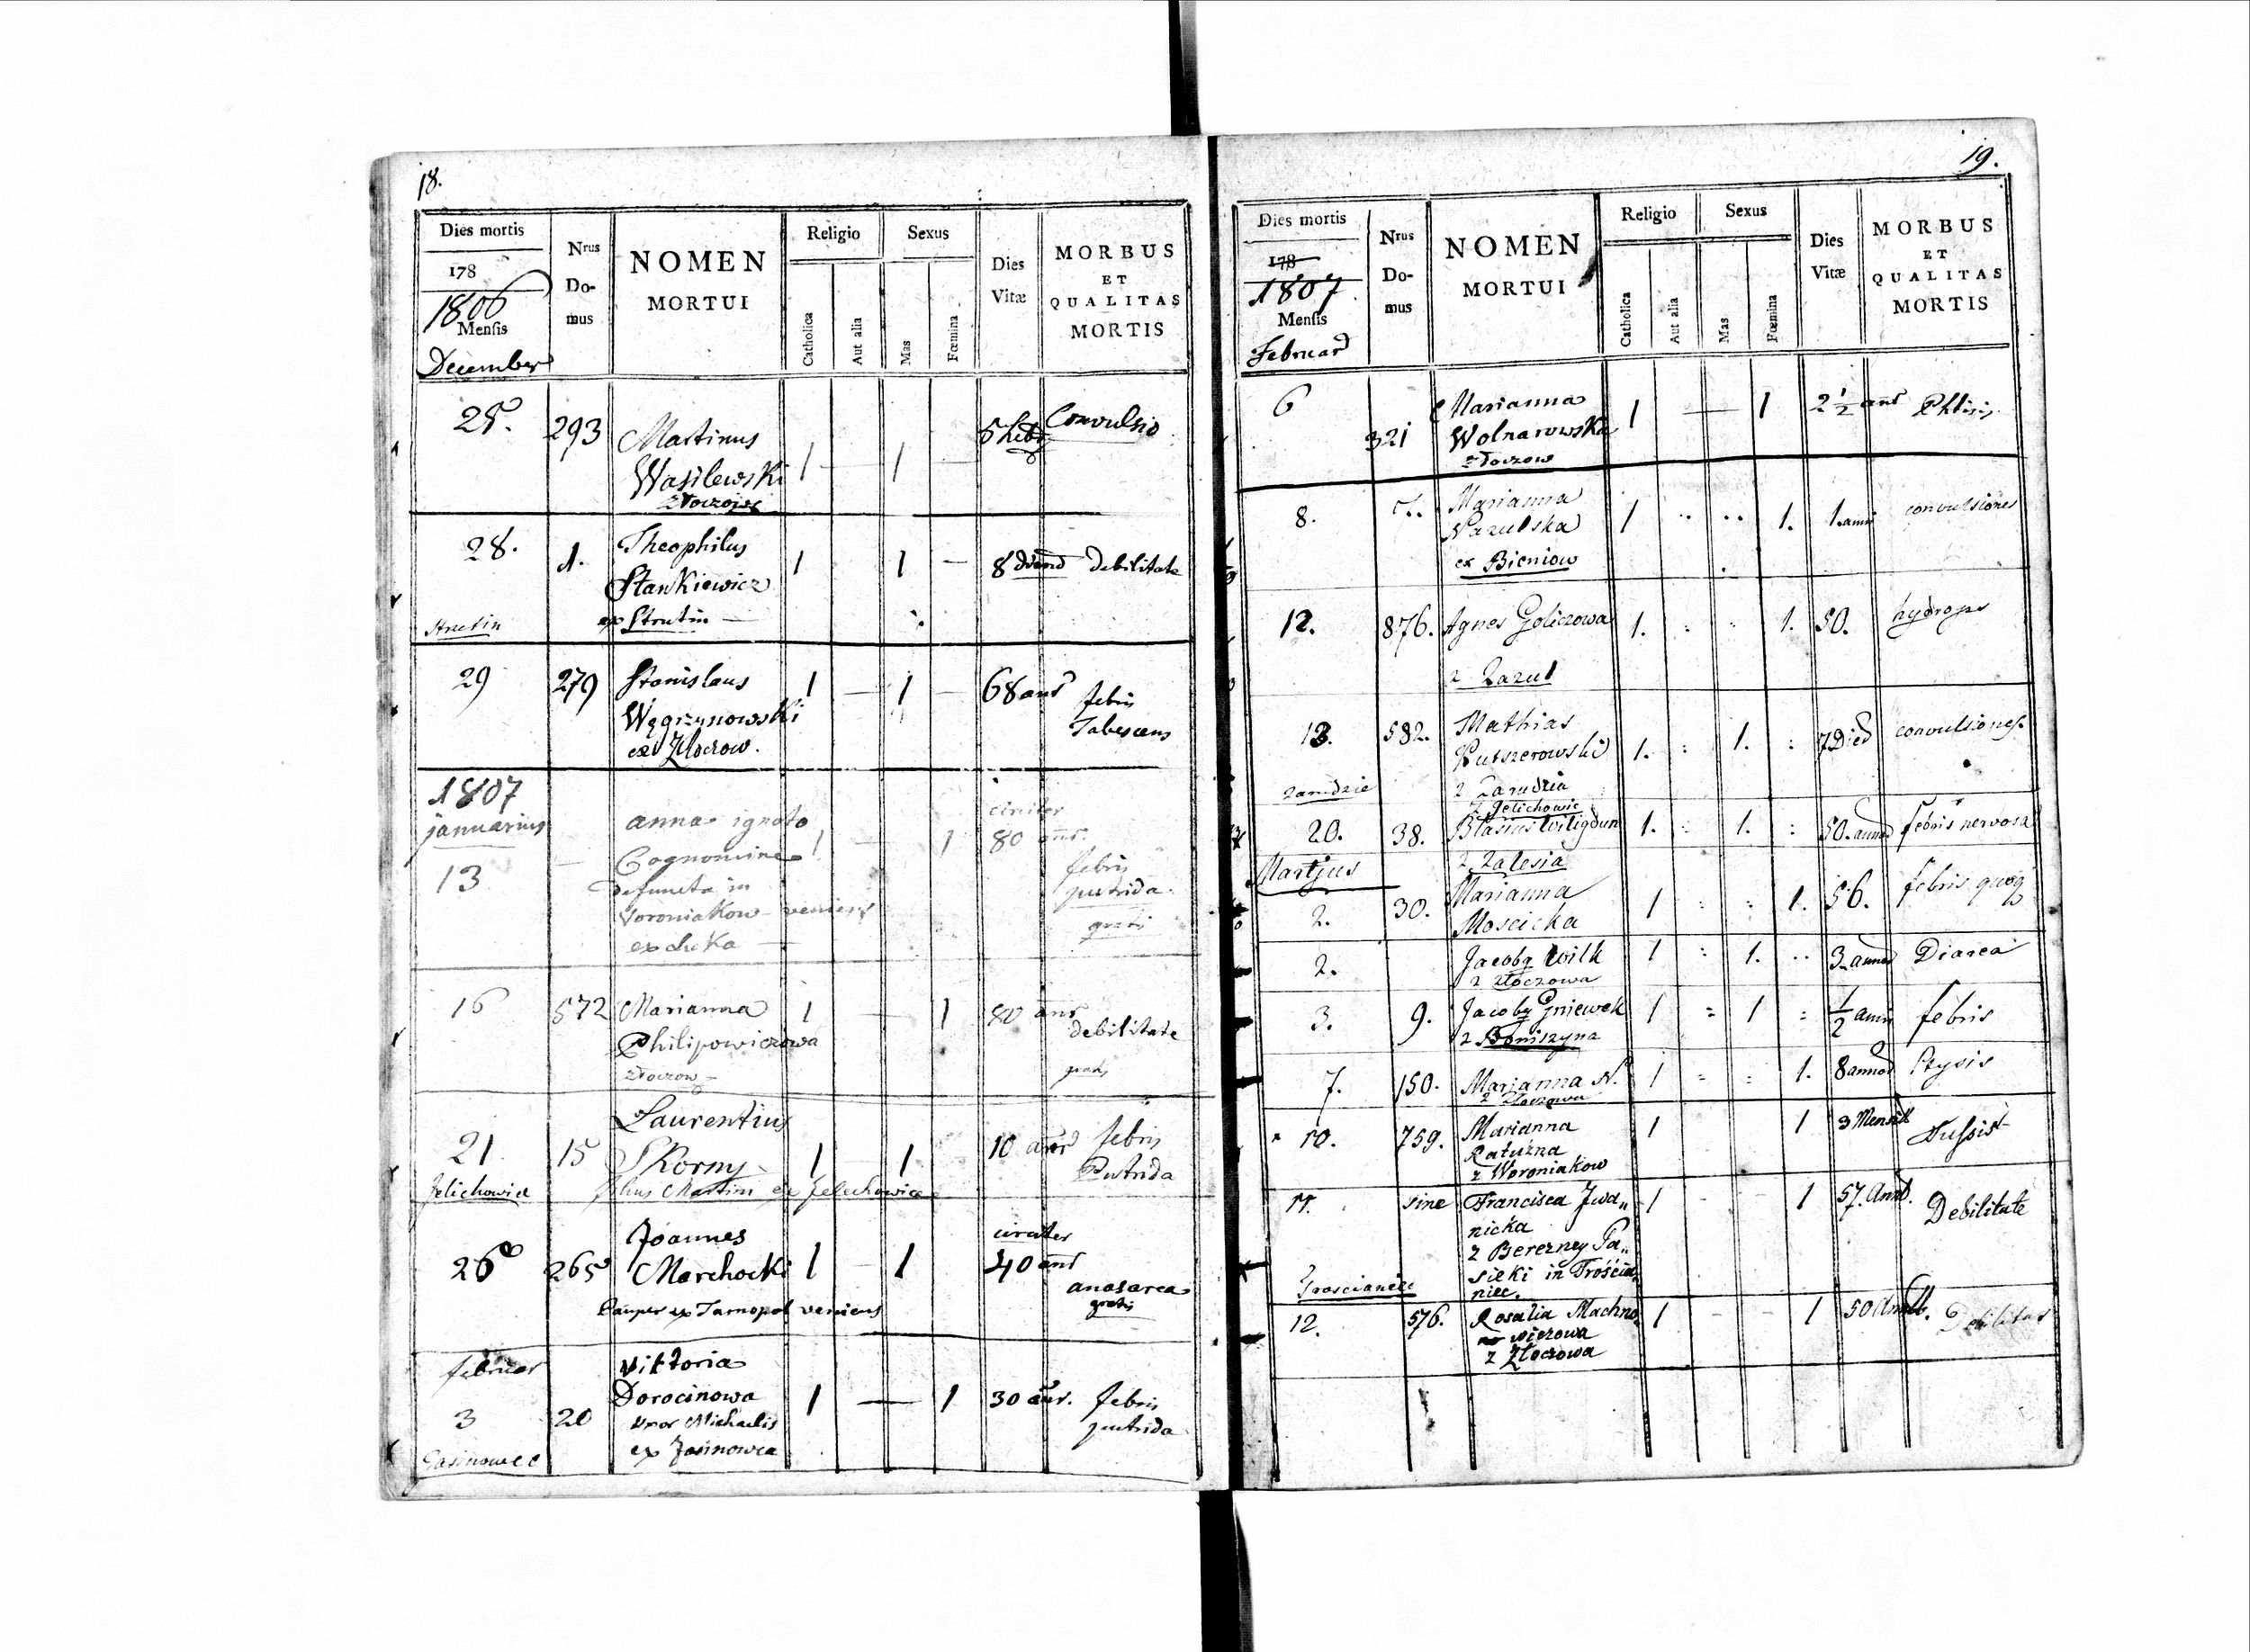 18.
Dies mortis
178
1806
Mensis
December
Nrus
Do-
mus
NOMEN
MORTUI
Religio
Catholica
Aut alia
Sexus
Mas
Fœmina
Dies
Vitæ
MORBUS
ET
QUALITAS
MORTIS
25. 293 Martinus 5 hebd Convulsio
Wasilewski 1 — 1 —
Złoczow
28. 1. Theophilus 1 1 — 8 dierū debilitate
Stankiewicz
Strutin ex Strutin —
29 279 Stanislaus 1 — 1 — 68 anr febris
Węgrzynowski Tabescens
ex Złoczow.
1807
januarius anna ignoto circiter
13 — Cognomine 1 — 1 80 anr. febris
defuncta in putrida
Woroniakow veniens gratis
ex Luka —
16 572 Marianna 1 — 1 80 anr debilitate
Philipowiczowa
złoczow gratis
Laurentius
21 15 Skorny 1 — 1 10 anr febris
Putrida
Jelichowice filius Martini ex Jelechowice
Joannes circiter
26 265 Marchocki 1 — 1 40 anr anasarca
Pauper ex Tarnopol veniens gratis
februar Viktoria
3 20 Dorocinowa 1 — 1 30 anr. febris
Uxor Michaelis putrida
ex Jasinowce
Jasinowce
19.
Dies mortis
178
1807
Mensis
Februar
Nrus
Do-
mus
NOMEN
MORTUI
Religio
Catholica
Aut alia
Sexus
Mas
Fœmina
Dies
Vitæ
MORBUS
ET
QUALITAS
MORTIS
6 321 Marianna 1 — 1 2 1/2 anr Phtisis
Wolnarowska
złoczow
8. Marianna 1 .. .. 1. 1. anni convulsiones
ex Bieniow
12. 876. Agnes Goliczowa 1. : : 1. 50. hydrops
z Zazul
13. 582. Mathias 1. : 1. : 7 Died convulsiones.
Putszerowski
zarudzie z Zarudzia
z Jelichowic
20. 38. Blasius Wiligdun 1. : 1. : 50. annor febris nervosa
Martjus z Zalesia
2. 30. Marianna 1 : : 1. 56. febris quoq
Moscicka
2. Jacobq Wilk 1 : 1. .. 3 annor Diarea
z złoczowa
3. 9. Jacobq Gniewek 1 : 1 : 1/2 anni febris
z Boniszyna
7. 150. Marianna N. 1 : : 1. 8 annor Ptysis
z złoczowa
10. 759. Marianna 1 1 3 Mensib Tussis
Ratuzna
z Woroniakow
11. sine Francisca Jwa„ 1 - - 1 57. Annr. Debilitate
nicka
z Berezney Pa„
sieki in Trościa„
Troscianiec niec.
12. 576. Rosalia Machno„ 1 - - 1 50 Annr. Debilitas
wiczowa
z Złoczowa